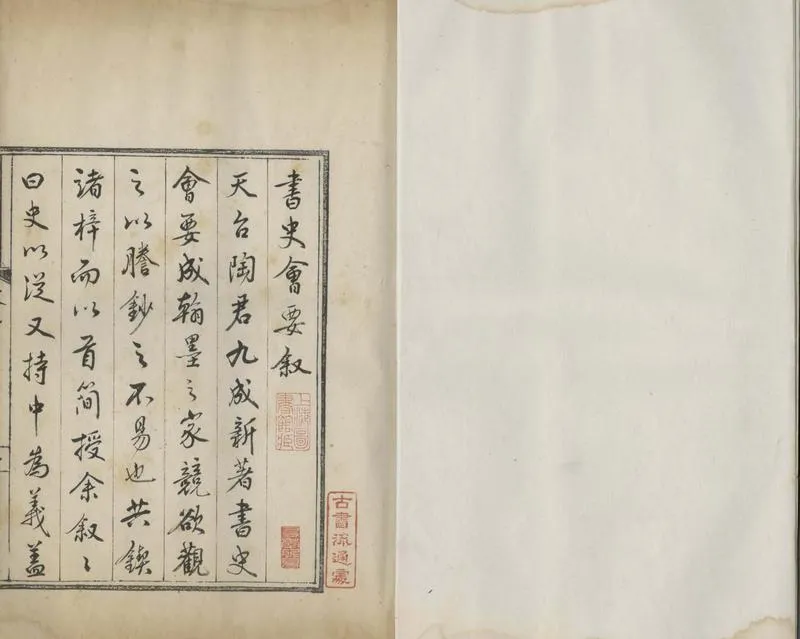 書史會要叙
天台陶君九成新著書史
會要成翰墨之家競欲觀
之以謄鈔之不易也共鍥
諸梓而以首簡授余叙〻
曰史以從又持中為義蓋
上海圖書館藏
古書流通處